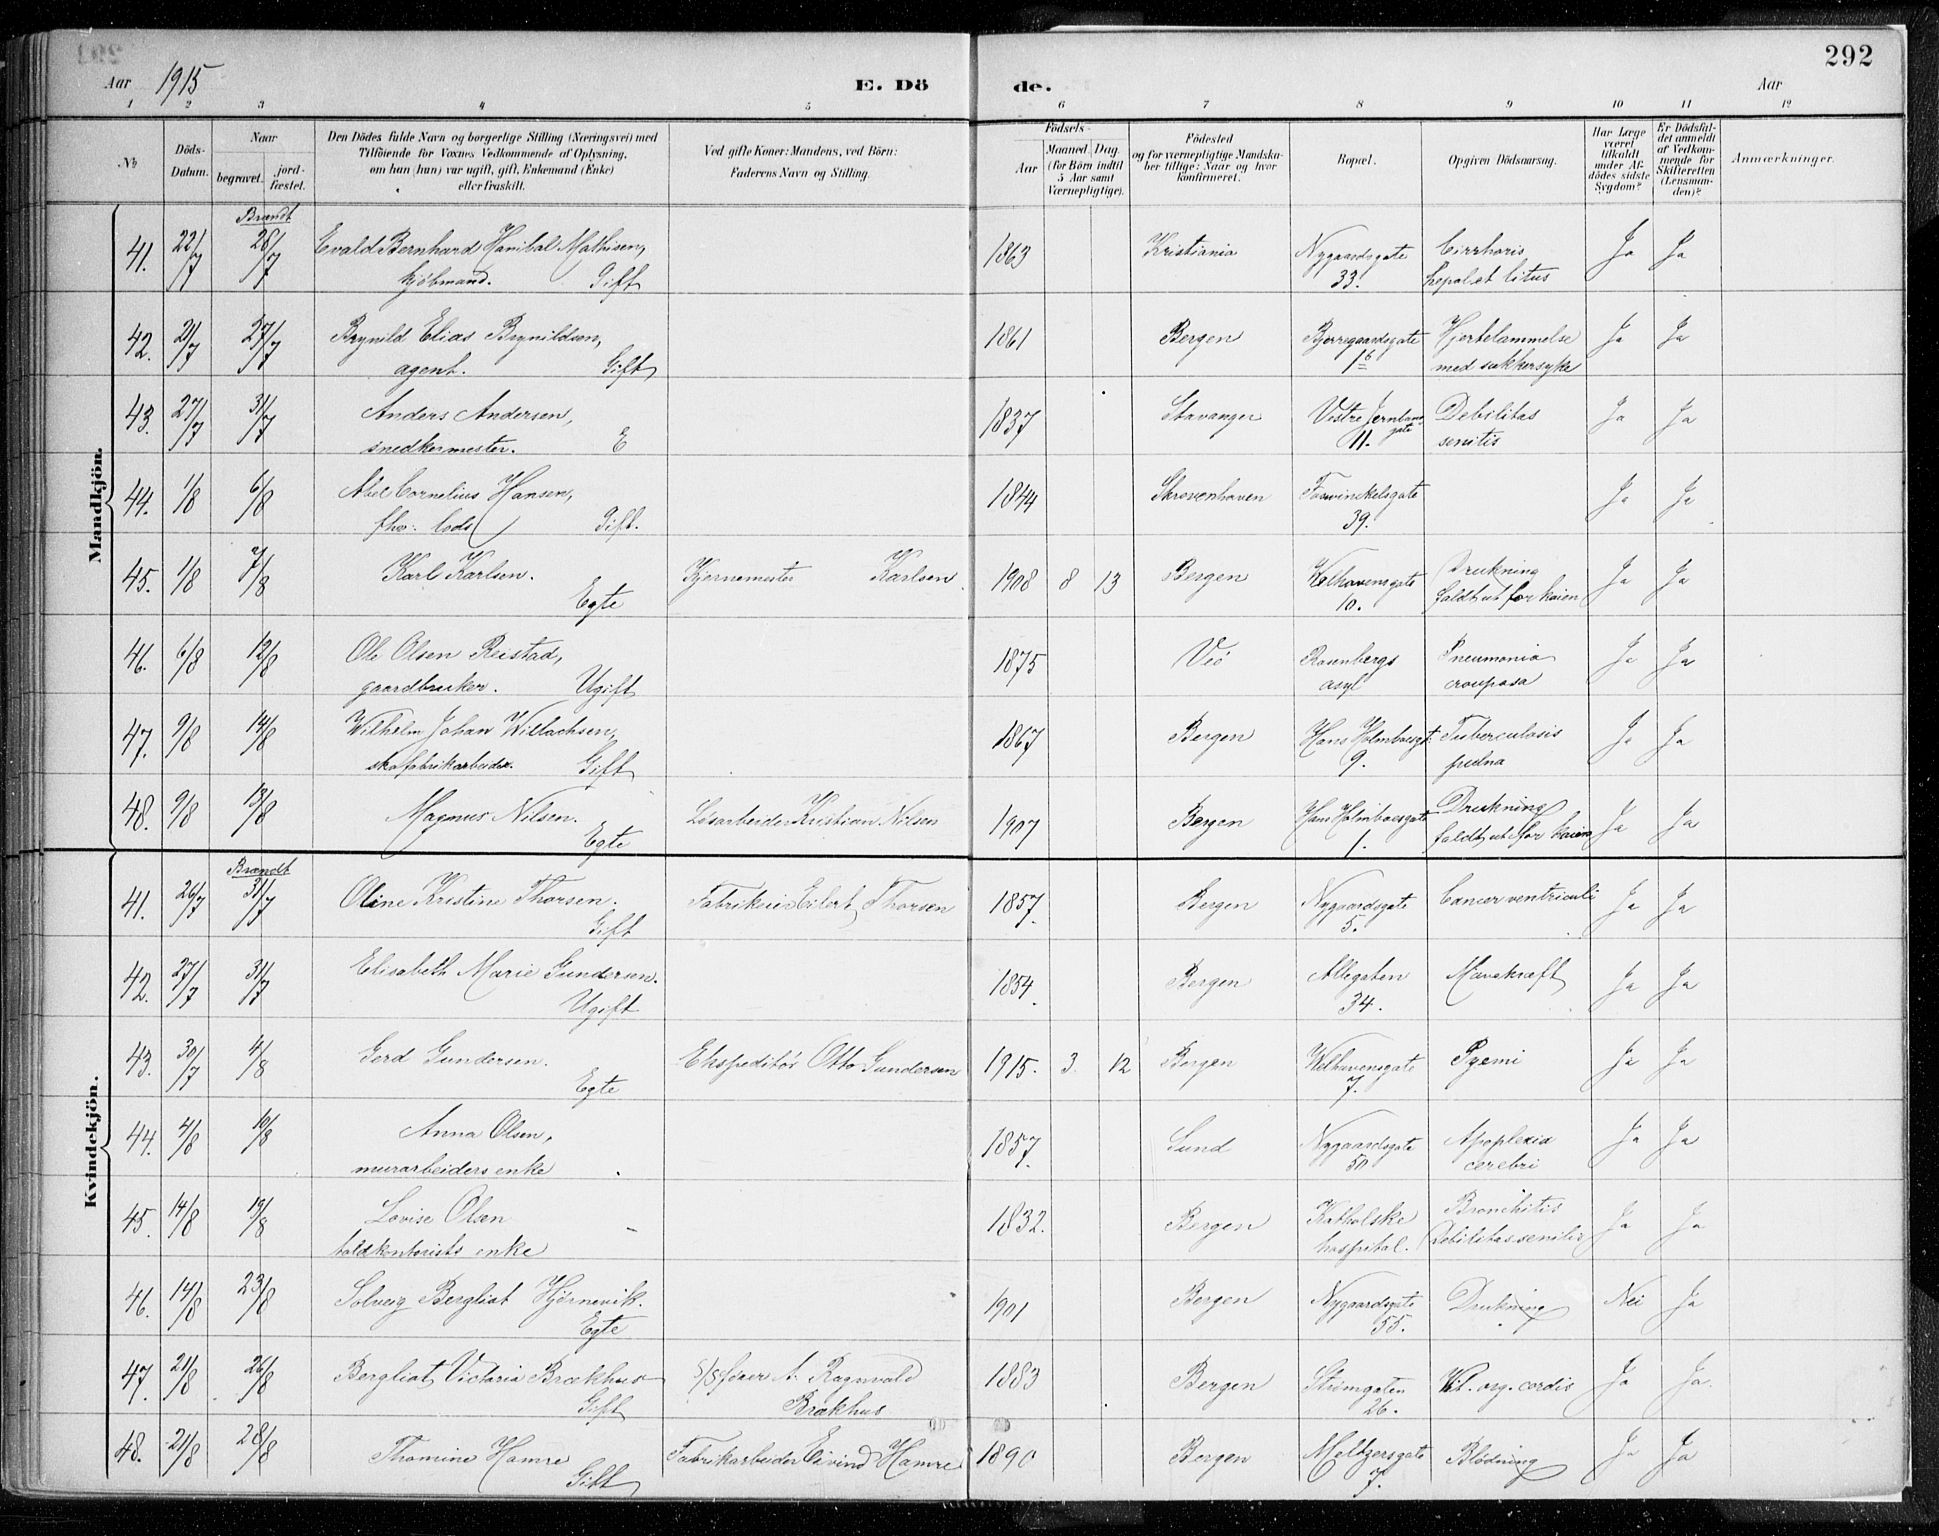 292
Aar 1915
E. Dö de.
Aar
1 2 3 4 5 6 7 8 9 10 11 12
No
Döds-Datum.
Naar
begravet. jordfæstet.
Den Dödes fulde Navn og borgerlige Stilling (Næringsvei) med
Tilföiende for Voxnes Vedkommende af Oplysning,
om han (hun) var ugift, gift, Enkemand (Enke)
eller fraskilt.
Ved gifte Koner: Mandens, ved Börn:
Faderens Navn og Stilling.
Födsels-
Aar Maaned. Dag.
(for Börn indtil
5 Aar samt
Værnepligtige).
Födested
og for værnepligtige Mandska-
ber tillige: Naar og hvor
konfirmeret.
Bopæl.
Opgiven Dödsaarsag.
Har Læge
været
tilkaldt
under Af-
dödes sidste
Sygdom?
Er Dödsfal-
det anmeldt
af Vedkom-
mende for
Skifteretten
(Lensman-
den)?
Anmærkninger.
Mandkjön.
Brændt
41. 22/7 28/7 Evald Bernhard Hanibal Mathisen, 1863 Kristiania Nygaardsgate Cirrhosis Ja Ja
kjøbmand. Gift 33.
42. 21/7 27/7 Brynild Elias Brynildsen, 1861 Bergen Bjerregaardsgate Hjertelammelse Ja Ja
agent. Gift 1b med sukkersyke
43. 27/7 31/7 Anders Andersen, 1837 Stavanger Vestre Jernbane Debilitas Ja Ja
snedkermester. E gate 11. senilis
44. 1/8 6/8 Abel Cornelius Hansen, 1844 Skrovenhaven Fosswinckelsgate Ja Ja
fhv: lods Gift. 39.
45. 1/8 7/8 Karl Karlsen. Kjernemester Karlsen 1908 8 13 Bergen Welhavensgate Drukning Ja Ja
Egte 10. faldt ut for kaien
46. 6/8 12/8 Ole Olsen Reistad, 1875 Veö Rosenbergs Pneumonia Ja Ja
gaardbruker. Ugift asyl crouposa
47. 9/8 14/8 Wilhelm Johan Willachsen, 1867 Bergen Hans Holmboesgt. Tuberculosis Ja Ja
skofabrikarbeider. Gift 9. pulna
48. 9/8 13/8 Magnus Nilsen. Løsarbeider Kristian Nilsen 1907 Bergen Hans Holmboesgate Drukning Ja Ja
Egte 1. faldt ut for kaien
Kvindekjön.
Brændt
41. 26/7 31/7 Oline Kristine Thorsen. Fabrikeier Eilert Thorsen 1857. Bergen Nygaardsgate Cancer ventriculi Ja Ja
Gift 5.
42. 27/7 31/7 Elisabeth Marie Gundersen. 1854. Bergen Allegaten Mavekræft Ja Ja
Ugift 34.
43. 30/7 4/8 Gerd Gundersen. Ekspeditör Otto Gundersen 1915. 3. 12 Bergen Welhavensgate Pyemi Ja Ja
Egte 7.
44. 4/8 10/8 Anna Olsen, 1857. Sund Nygaardsgate Apoplexia Ja Ja
murarbeiders enke 50 cerebri
45. 14/8 19/8 Lovise Olsen 1832. Bergen Katholske Bronchitis Ja Ja
toldkontorists enke hospital. Debilitas senilis
46. 14/8 23/8 Solveig Bergliot Hjørnevik. 1901 Bergen Nygaardsgate Drukning Nei Ja
Egte 55.
47. 21/8 26/8 Bergliot Victoria Brækhus S/S fører A. Ragnvald 1883 Bergen Strømgaten Vit. org. cordis Ja Ja
Gift Brækhus 26.
48. 21/8 28/8 Thomine Hamre Fabrikarbeider Eivind Hamre 1890 Bergen Meltzersgate Blödning Ja Ja
Gift 7.